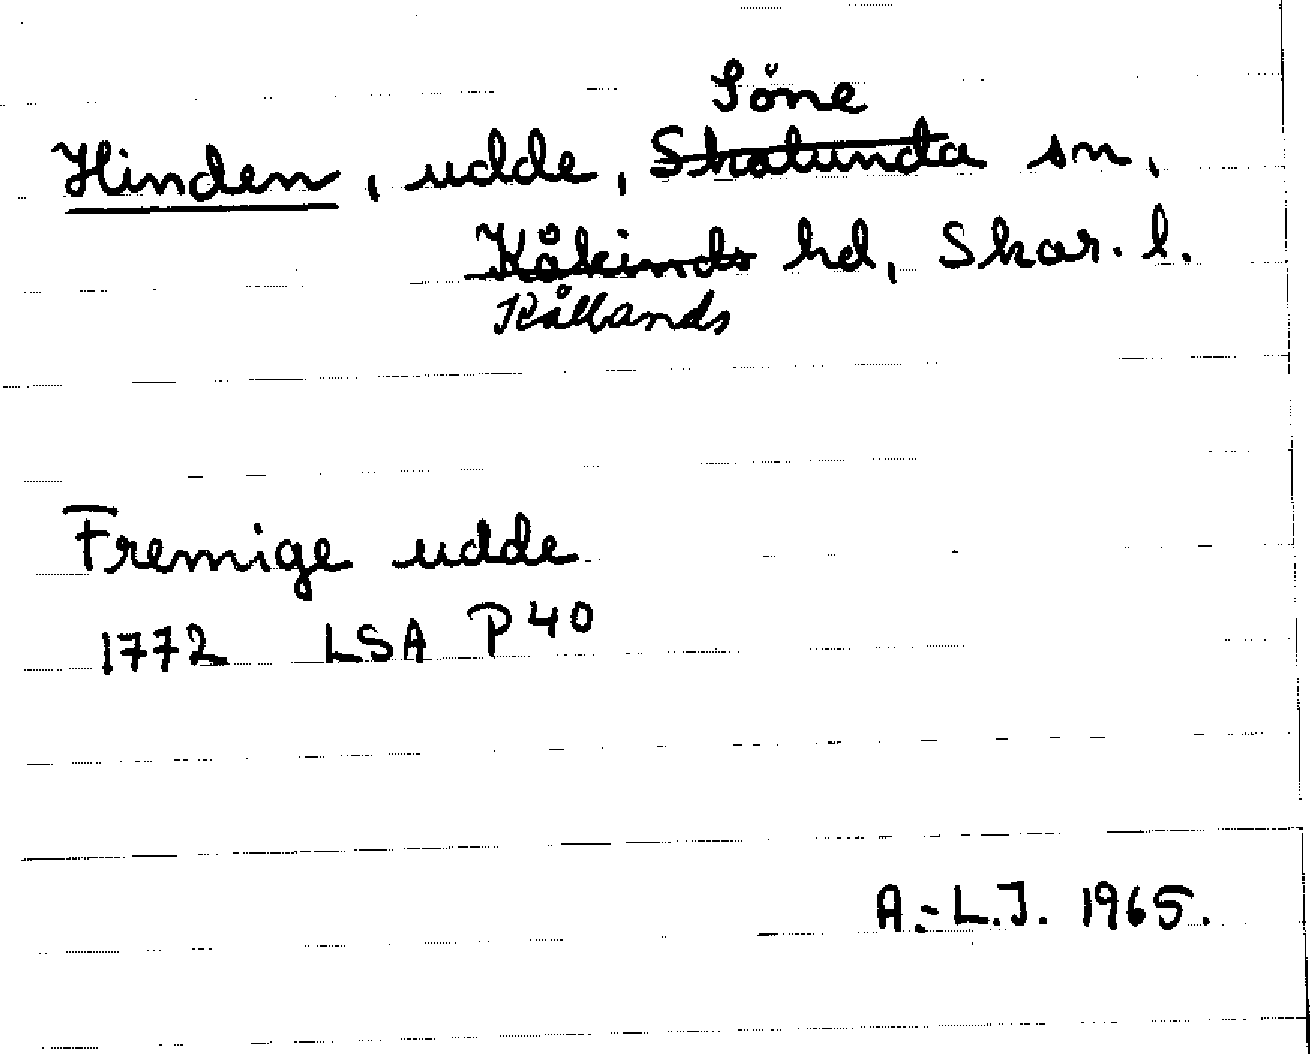 Söne
Hinden, udde, Skalunda sn,
Kåkinds hd, Skar. l.
Kållands
Fremige udde
1772 LSA P 40
A.-L.J. 1965.